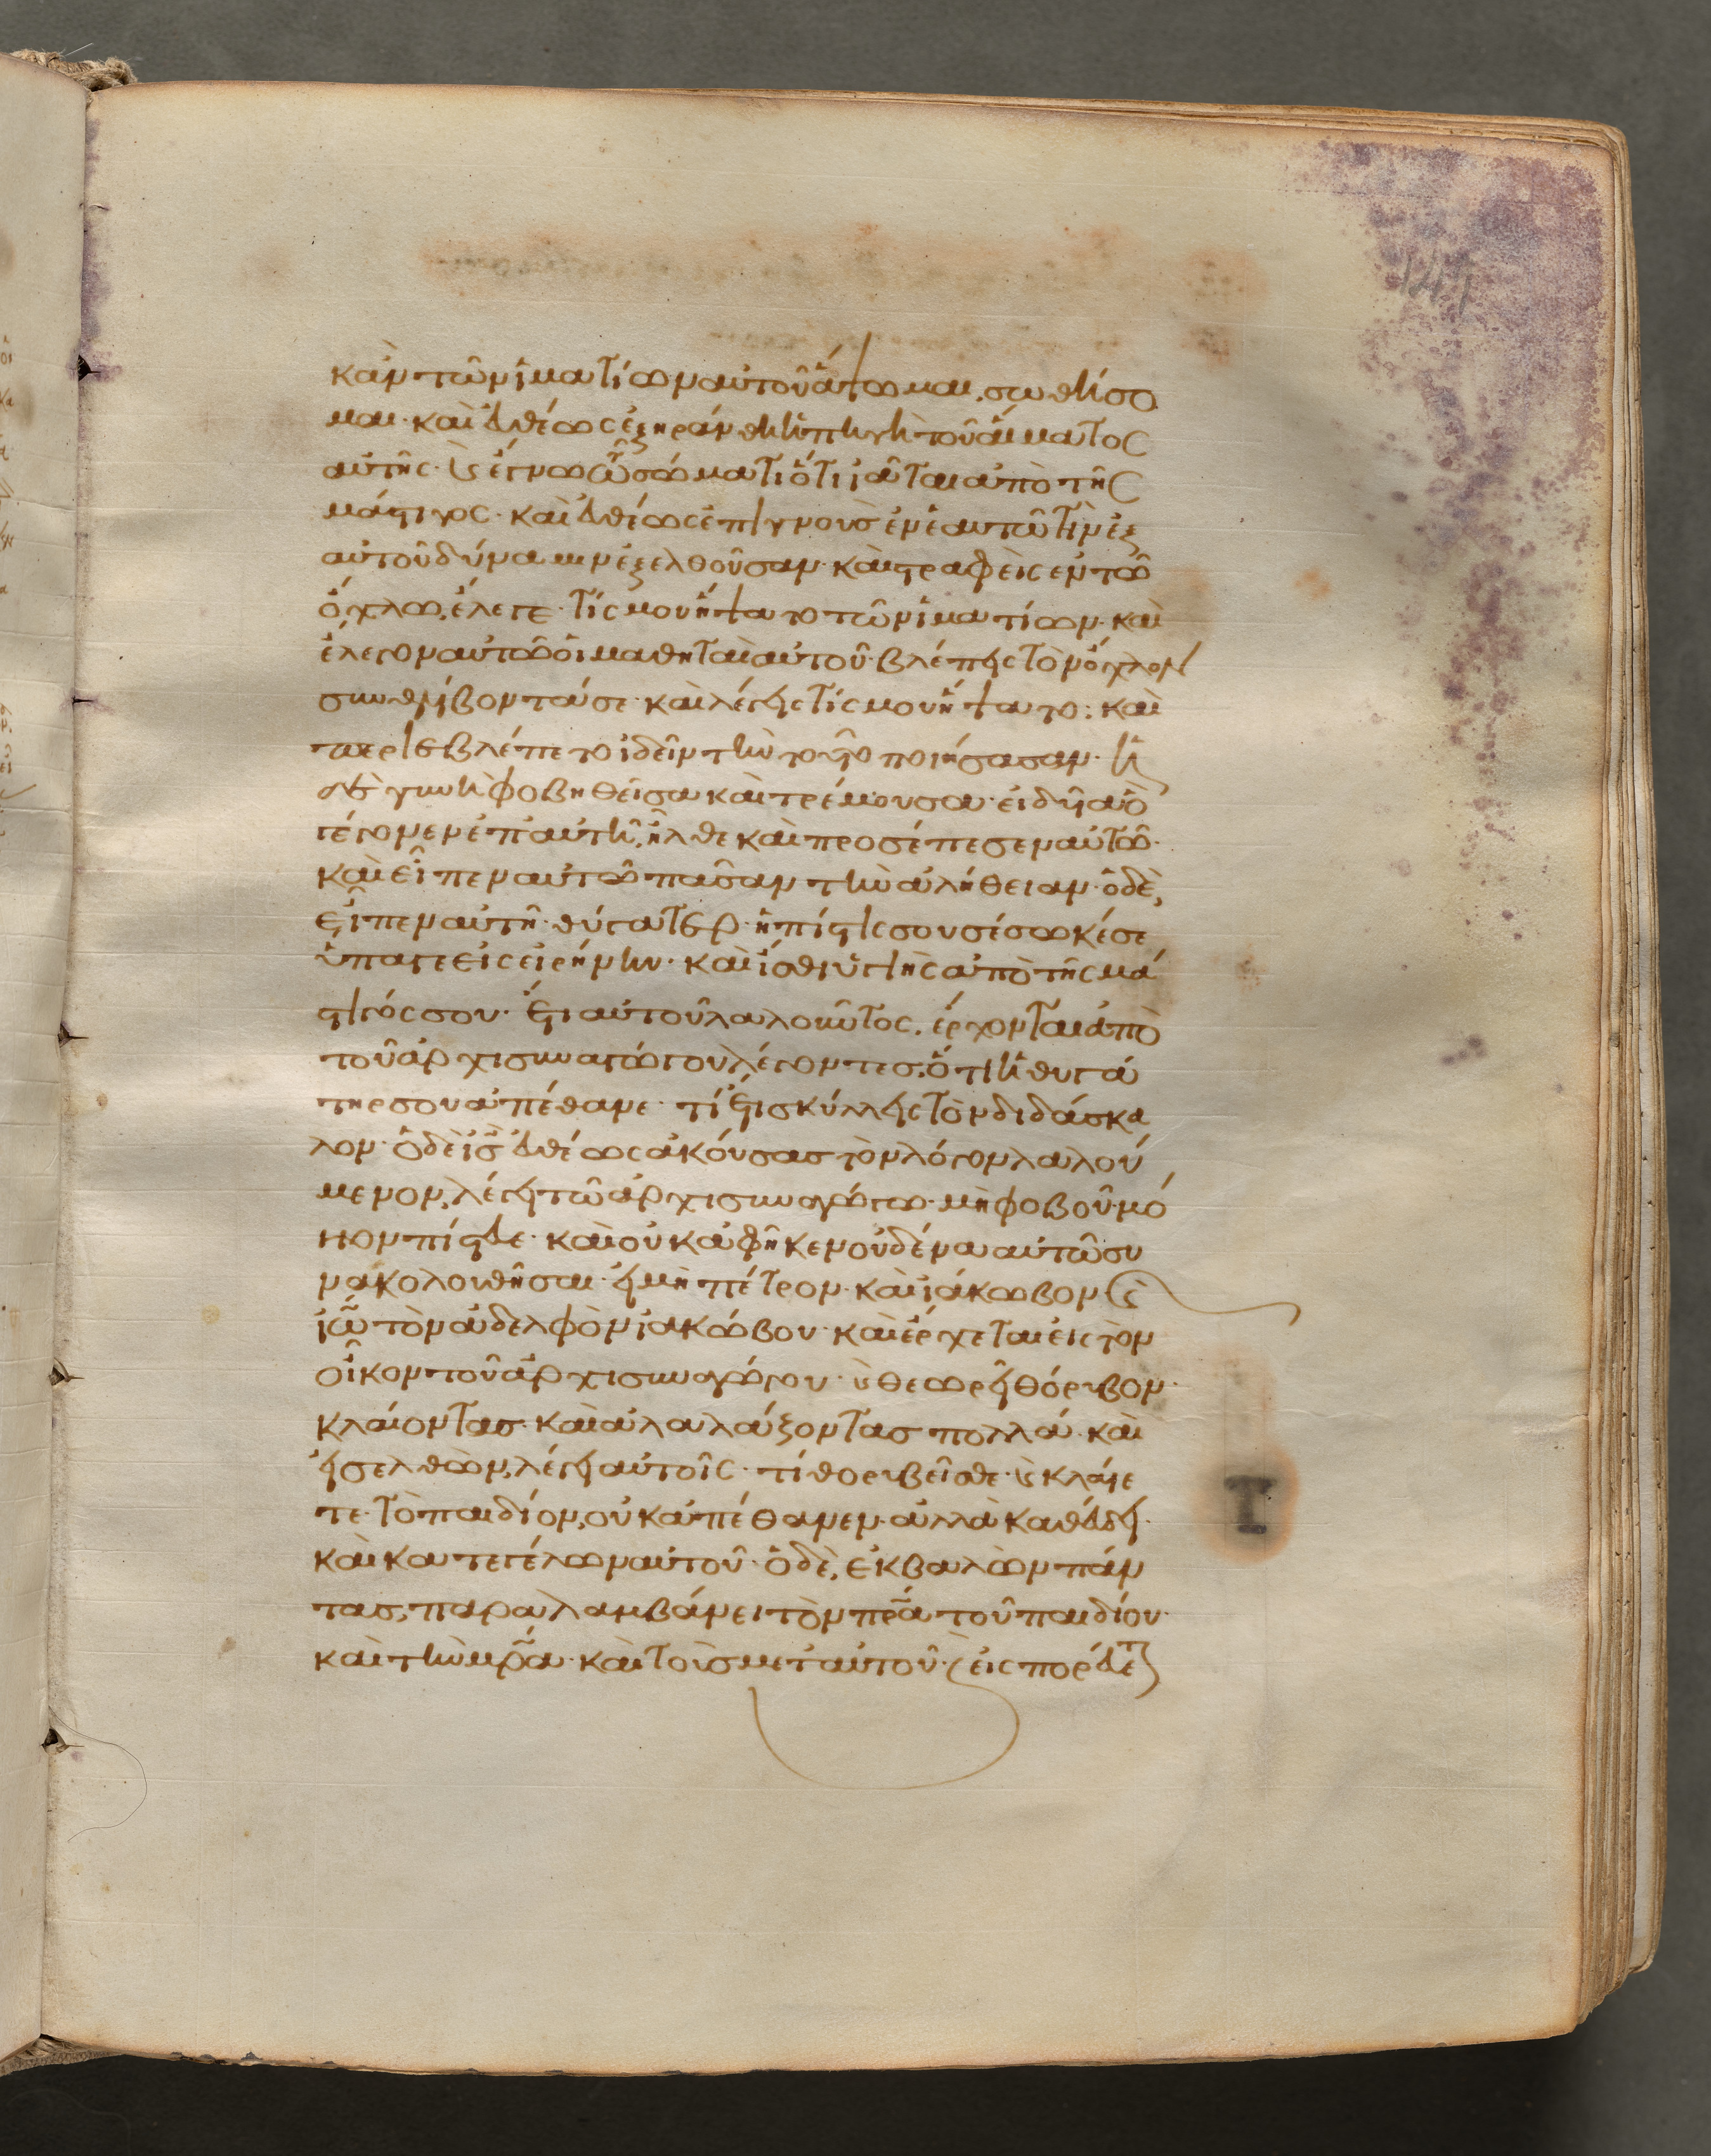 κἂν τῶν ἱματίων αὐτοῦ ἅψωμαι, σωθήσο
μαι· καὶ εὐθέως ἐξηράνθη ἡ πηγὴ τοῦ αἵματος
αὐτῆς· καὶ ἔγνω τῶ σώματι ὅτι ἰᾶται ἀπὸ τῆς
μάστιγος· καὶ εὐθέως ἐπιγνοὺς ἐν ἑαυτῶ τὴν ἐξ
αὐτοῦ δύναμιν ἐξελθοῦσαν· καὶ στραφεὶς ἐν τῶ
ὄχλω, ἔλεγε· τίς μου ἥψατο τῶν ἱματίων· καὶ
ἔλεγον αὐτῶ οἱ μαθηταὶ αὐτοῦ· βλέπεις τὸν ὄχλον
συνθλίβοντά σε· καὶ λέγεις τίς μου ἥψατο; καὶ
περιεβλέπετο ἰδεῖν τὴν τοῦτο ποιήσασαν· ἡ
δὲ γυνὴ φοβηθεῖσα καὶ τρέμουσα· εἰδυῖα ὃ
γέγονεν ἐπ' αὐτῆ, ἦλθε καὶ προσέπεσεν αὐτῶ·
καὶ εἶπεν αὐτῶ πᾶσαν τὴν ἀλήθειαν· ὁ δὲ,
εἶπεν αὐτῆ· θύγατερ· ἡ πίστις σου σέσωκέ σε
ὕπαγε εἰς εἰρήνην· καὶ ἴσθι ὑγιὴς ἀπὸ τῆς μά
στιγός σου· Ἔτι αὐτοῦ λαλοῦντος, ἔρχονται ἀπὸ
τοῦ ἀρχισυναγώγου λέγοντες, ὅτι ἡ θυγά
τηρ σου ἀπέθανε· τί ἔτι σκύλλεις τὸν διδάσκα
λον· ὁ δὲ ις εὐθέως ἀκούσας τὸν λόγον λαλού
μενον, λέγει τῶ ἀρχισυναγώγω· μὴ φοβοῦ· μό
νον πίστευε· καὶ οὐκ ἀφῆκεν οὐδένα αὐτῶ συ
νακολουθῆσαι· εἰ μὴ πέτρον· καὶ ἰάκωβον καὶ
ἰω τὸν ἀδελφὸν ἰακώβου· καὶ ἔρχεται εἰς τὸν
οἶκον τοῦ ἀρχισυναγώγου· καὶ θεωρεῖ θόρυβον·
κλαίοντας· καὶ ἀλαλάζοντας πολλά· καὶ
εἰσελθὼν, λέγει αὐτοῖς· τί θορυβεῖσθε· καὶ κλαίε
τε· τὸ παιδίον, οὐκ ἀπέθανεν· ἀλλὰ καθεύδει·
καὶ κατεγέλων αὐτοῦ· ὁ δὲ, ἐκβαλὼν πάν
τας, παραλαμβάνει τὸν πρα τοῦ παιδίου·
καὶ τὴν μρα· καὶ τοὺς μετ' αὐτοῦ· καὶ εἰσπορεύετ